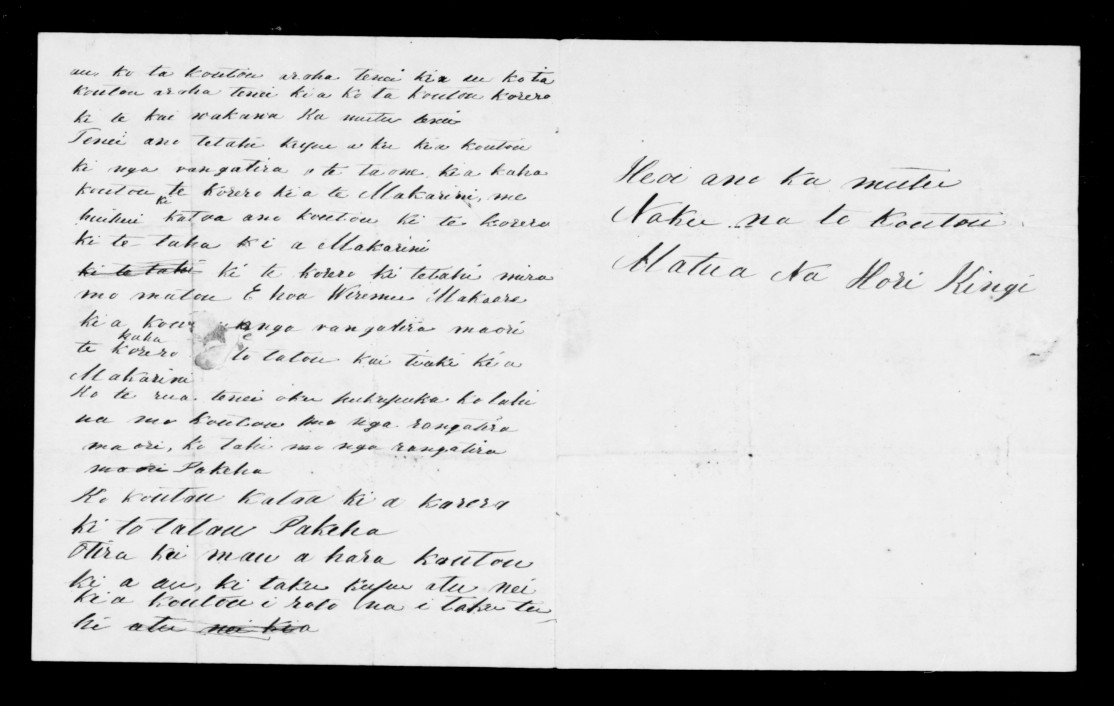 au, ko ta koutou aroha tenei kia au ko ta
koutou aroha tenei kia ko ta koutou korero
ki te kai wakawa Ka mutu tenei
Tenei ano tetahi kupu a ku kia koutou
ki nga rangatira o te taone kia kaha
koutou te korero ki a te Makarini, me
huihui katoa ano koutou ki te korero
ki te taha ki a Makarini
ki te tahi ki te korero ki tetahi mira
mo matou E hoa Wiremu
kia nga rangatira maori
kaha
te korero to tatou kai tiaki ki a
Makarini
Ko te rua tenei oku pukapuka ko tahi
na mo koutou mo nga rangatira
maori, ko tahi mo nga rangatira
maori Pakeha
Ko koutou katoa ki a korero
ki to tatou Pakeha
Otira kei mau a hara koutou
ki a au, ki taku kupu atu nei
kia koutou i roto na i taku tu
ki atu nei kia
Heoi ano ka mutu
Naku na to koutou
Matua Na Hori Kingi